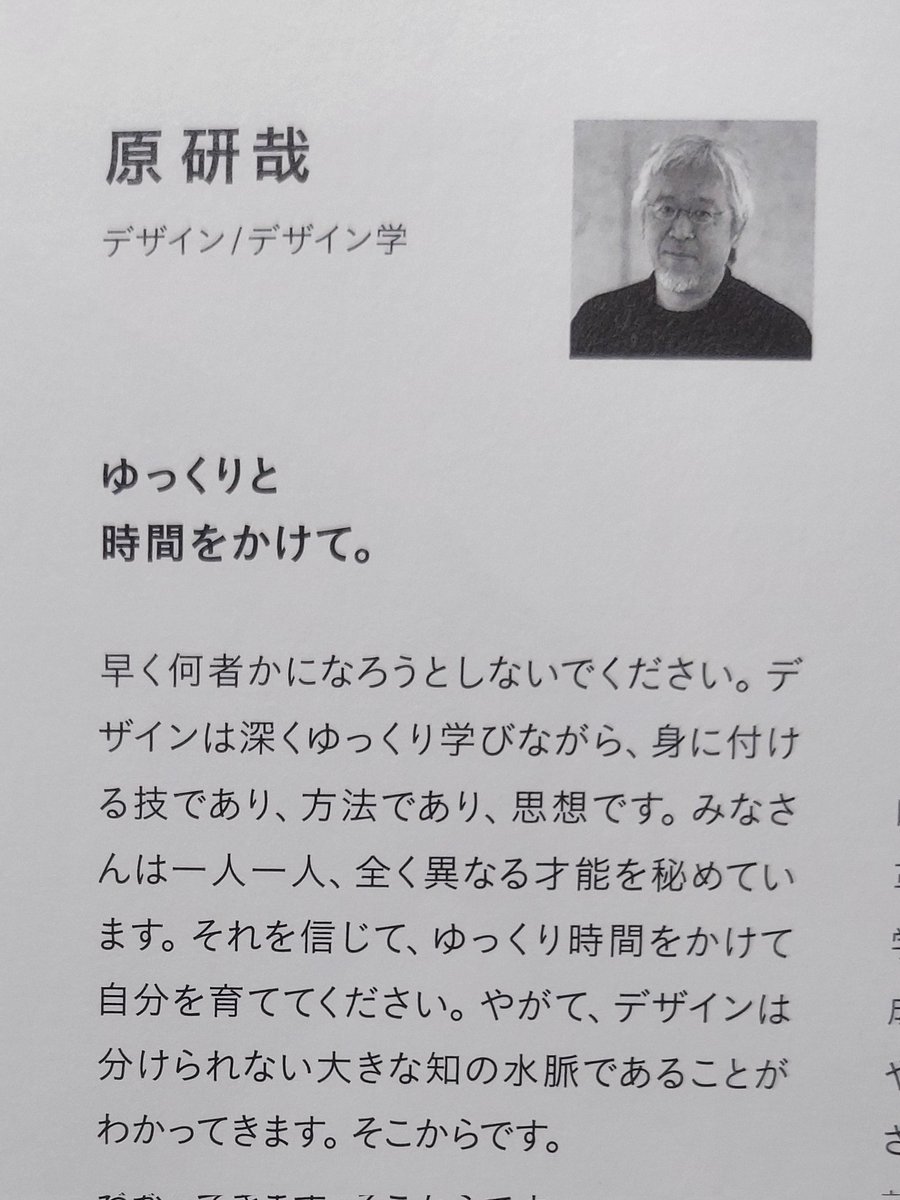 原 研哉
デザイン/デザイン学
ゆっくりと
時間をかけて。
早く何者かになろうとしないでください。デ
ザインは深くゆっくり学びながら、身に付け
る技であり、方法であり、思想です。みなさ
んは一人一人、全く異なる才能を秘めてい
ます。それを信じて、ゆっくり時間をかけて
自分を育ててください。やがて、デザインは
分けられない大きな知の水脈であることが
わかってきます。そこからです。